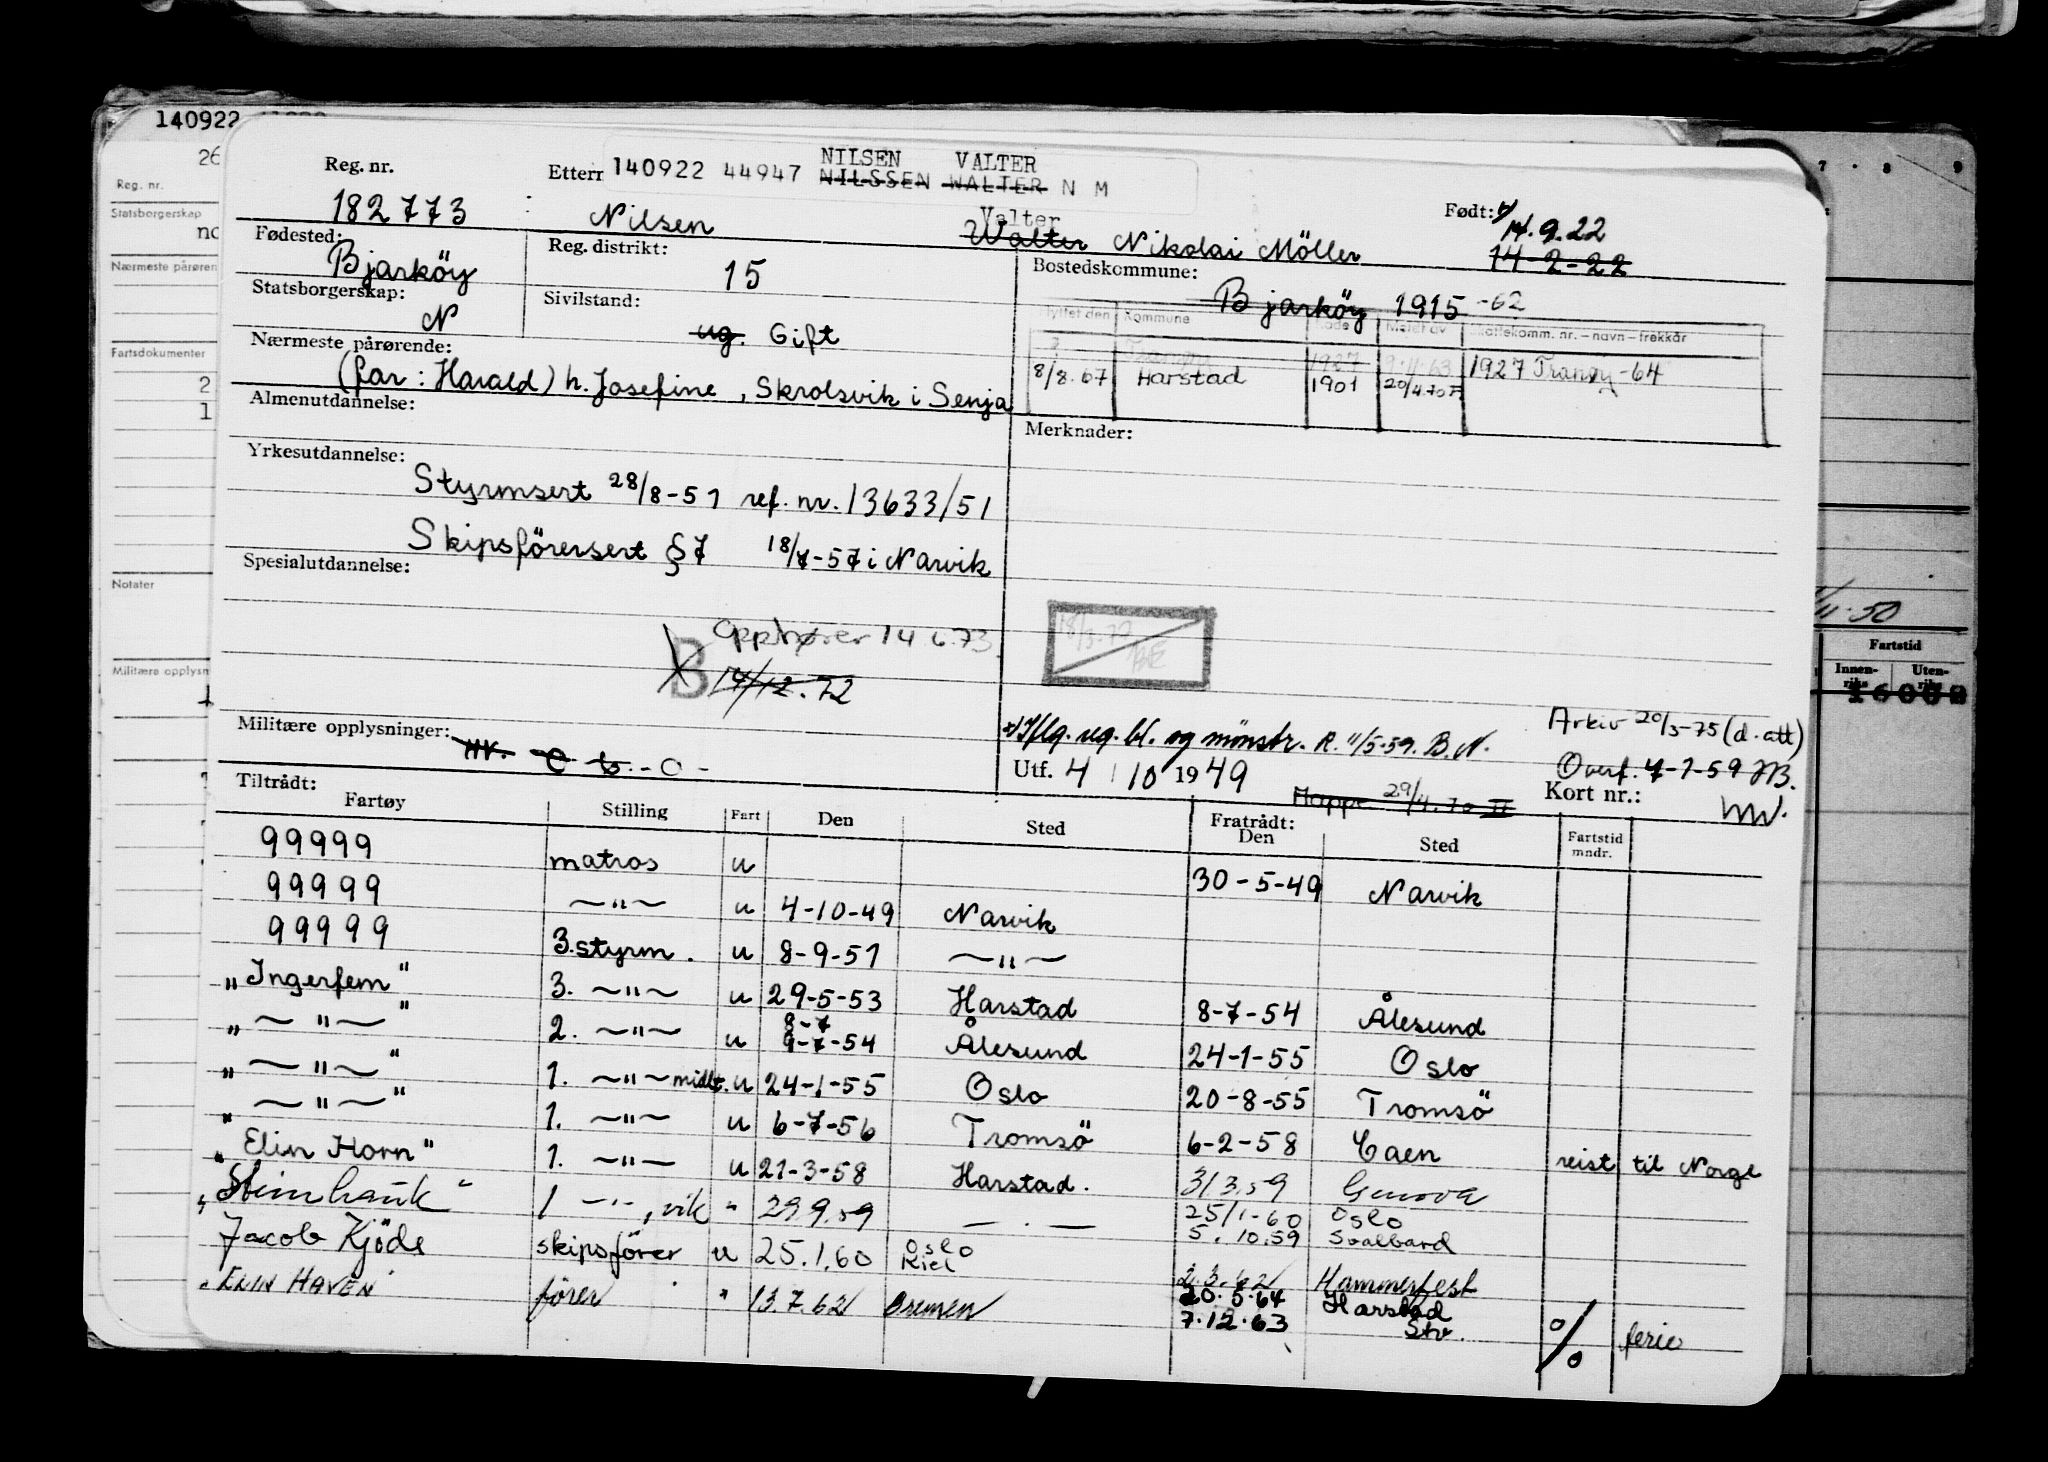 140922
26
Reg. nr.
Statsborgerskap
no
Nærmeste pårøren
Fartsdokumenter
2
1
Notater
Militære opplysn
7 . 8 9
/11-50
Fartstid
Innen-riks Uten-riks
Reg. nr. 182773
Etterr 140922 44947 NILSEN VALTER
NILSSEN WALTER N M
Nilsen Valter
Walter Nikolai Möller
Født: x/ 14.9.22
14-2-22
Fødested: Bjarköy
Reg. distrikt: 15
Bostedskommune: Bjarköy 1915 -62
Statsborgerskap: N
Sivilstand: ug. Gift
Flyttet den Kommune Kode Meldt av Skattekomm. nr. – navn – trekkår
Tranøy 1927 9.11.63 1927 Tranøy -64
8/8.67 Harstad 1901 20/4.70
Nærmeste pårørende: (far: Harald) h. Josefine, Skrolsvik i Senja
Almenutdannelse:
Merknader:
Yrkesutdannelse: Styrmsert 28/8-51 ref. nr. 13633/51
Skipsförersert §7 18/7-57 i Narvik
Spesialutdannelse:
Opphører 14 6.73
B 14/12.72
x) Iflg. reg. bl. og mönstr. R. 11/5-59. B.N.
Arkiv 20/3-75 (d. att)
Militære opplysninger: HV.
Utf. 4/10 1949
Overf. 7-7-59 JB.
Mappe 29/4.70
Kort nr.:
Tiltrådt:
Fartøy Stilling Fart Den Sted Fratrådt: Den Sted Fartstid mndr.
99999 matros u 30-5-49 Narvik
99999 —"— u 4-10-49 Narvik
99999 3.styrm. u 8-9-51 —"—
"Ingerfem" 3. —"— u 29-5-53 Harstad 8-7-54 Ålesund
"—"—" 2. —"— u 8-7
9-7-54 Ålesund 24-1-55 Oslo
"—"—" 1. —"— midlt. u 24-1-55 Oslo 20-8-55 Tromsö
"—"—" 1. —"— u 6-7-56 Tromsö 6-2-58 Caen reist til Norge
"Elin Horn" 1. —"— u 21-3-58 Harstad. 31 3.59 Genova
"Steinhauk" 1 —"—, vik " 29.9.59 — . — 25/1-60 Oslo
5. 10.59 Svalbard
Jacob Kjöde skipsförer u 25.1.60 Oslo
Kiel
2.3.62 Hammerfest
"ELIN HAVEN" förer " 13.7.62 Bremen 20.5.64 Harstad
7.12.63 Stv. o/o ferie